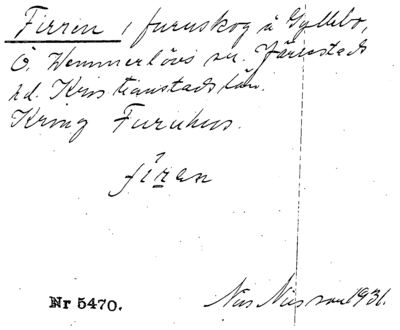 Firren i furuskog å Gyllebo,
Ö. Wemmerlövs sn. Järrestads
hd. Kristianstads län.
Kring Furuhus.
fíran
Nr 5470.
Nils Nilsson 1931.